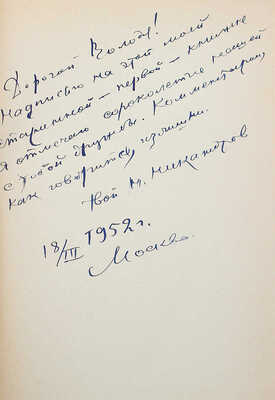 Дорогой Володя!
Надписью на этой моей
старинной – первой – книжке
я отмечаю сорокалетие нашей
с тобой дружбы. Комментарии,
как говорится, излишни.
Твой Н. Никандров
18/III 1952 г.
Москва.